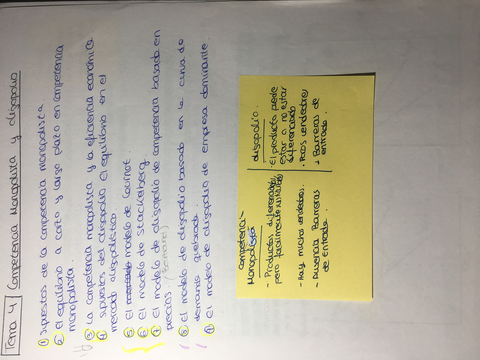 Tema 4 Competencia Monopolista y oligopolio
① supuestos de la competencia monopolista
② el equilibrio a corto y largo plazo en competencia
monopolista.
③ La competencia monopolista y la eficiencia económica
④ supuestos del oligopolio. El equilibrio en el
mercado oligopolístico
⑤ El modelo de Cournot
⑥ El modelo de Stackelberg.
⑦ El modelo de oligopolio de competencia basado en
precios.
⑧ El modelo de oligopolio basado en la curva de
demanda quebrada
⑨ El modelo de oligopolio de empresa dominante
competencia
Monopolística
- Productos diferenciados,
pero
- Hay muchos vendedores.
- Ausencia Barreras
de Entrada.
oligopolio.
· El producto puede
estar o no estar
diferenciado
· Pocos vendedores
· Barreras de
entrada